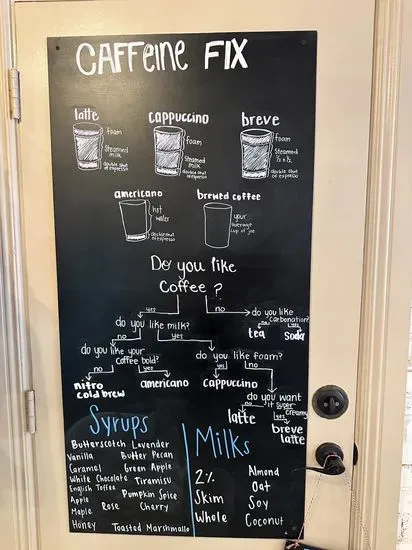 CAFFeine FIX
latte
cappuccino
breve
foam
Steamed milk
double shot of espresso
foam
Steamed milk
double shot of espresso
foam
Steamed ½ & ½
double shot of espresso
americano
brewed coffee
hot water
double shot of espresso
your average cup of joe
Do you like
Coffee?
yes
no
do you like milk?
do you like carbonation?
no
yes
no
yes
tea
soda
do you like your coffee bold?
do you like foam?
no
yes
yes
no
nitro cold brew
americano
cappuccino
do you want it super creamy
no
yes
latte
breve latte
Syrups
Butterscotch Lavender
Vanilla Butter Pecan
Caramel Green Apple
White Chocolate Tiramisu
English Toffee
Apple Pumpkin Spice
Maple Rose Cherry
Honey Toasted Marshmallo
Milks
2% Almond
Skim Oat
Whole Soy
Coconut